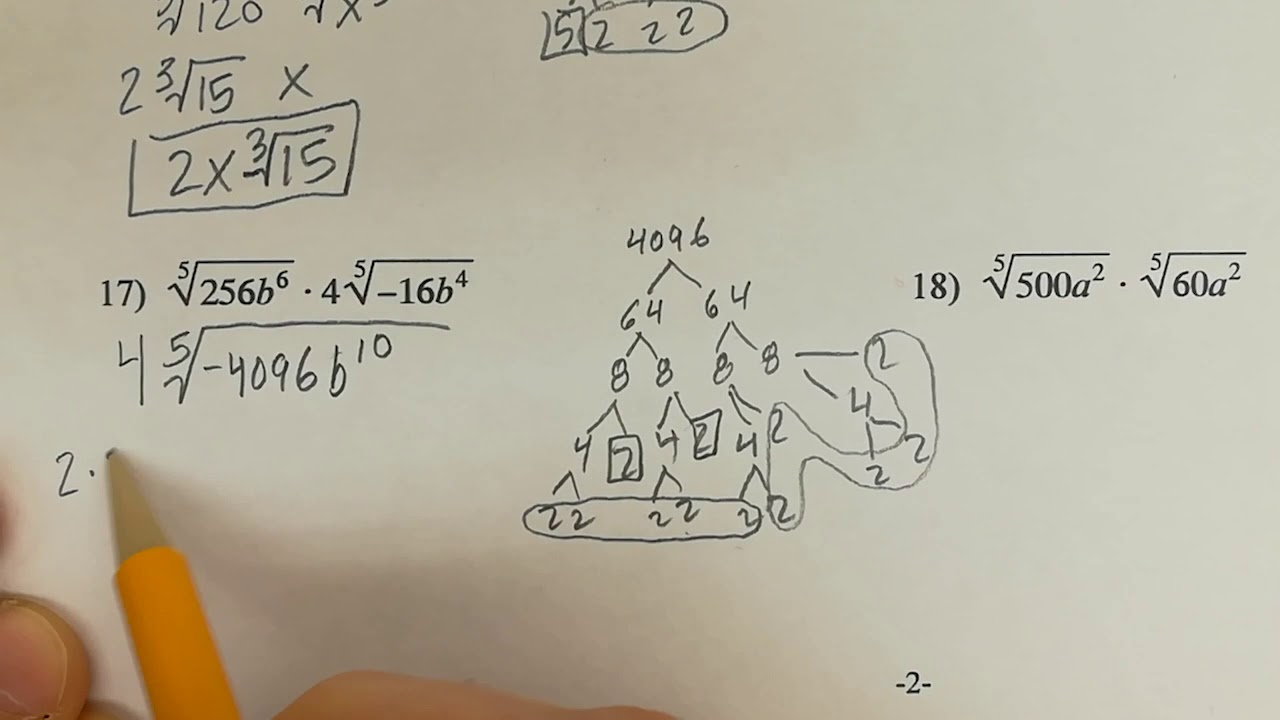 ∛120 ∛x³
5 2 2 2
2 ∛15 x
2x ∛15
17) ⁵√256b⁶ · 4 ⁵√−16b⁴
4 ⁵√-4096b¹⁰
2 ·
4096
64 64
8 8 8 8 2
4 2 4 2 4 2 4
2 2
2 2 2 2 2 2
18) ⁵√500a² · ⁵√60a²
-2-